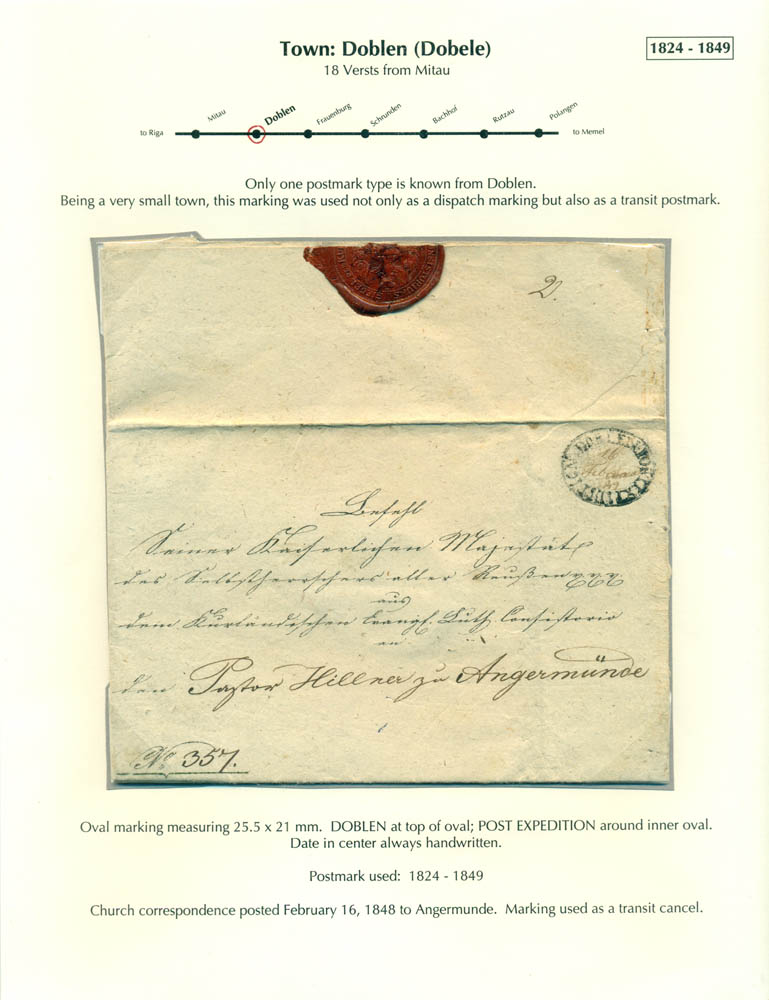 Town: Doblen (Dobele)
1824 - 1849
18 Versts from Mitau
to Riga Mitau Doblen Frauenburg Schrunden Bachhof Rutzau Polangen to Memel
Only one postmark type is known from Doblen.
Being a very small town, this marking was used not only as a dispatch marking but also as a transit postmark.
2.
16
Befehl
Seiner Kaiserlichen Majestät
des Selbstherrschers aller Reußen
aus
dem Kurländischen Evangl. Luth. Consistorio
an
den Pastor Hillner zu Angermünde
No 357.
Oval marking measuring 25.5 x 21 mm. DOBLEN at top of oval; POST EXPEDITION around inner oval.
Date in center always handwritten.
Postmark used: 1824 - 1849
Church correspondence posted February 16, 1848 to Angermunde. Marking used as a transit cancel.